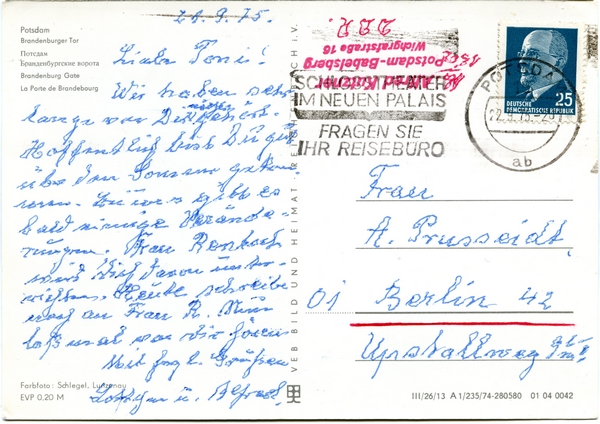 21.9.75.
Potsdam
Brandenburger Tor
Потсдам
Бранденбургские ворота
Brandenburg Gate
La Porte de Brandebourg
Liebe Toni!
Wir haben sehr
lange von Dir nichts gehört.
Hoffentlich bist Du gut
über den Sommer gekom-
men. Bei uns gibt es
bald einige Verände-
rungen. Frau
wird Dich davon unter-
richten. Heute schreibe
noch an Frau R. Nun
laß mal von Dir hören
Mit frdl. Grüßen
u. Alfred.
Farbfoto: Schlegel, Luckenau
EVP 0,20 M
VEB BILD UND HEIMAT REICHENBACH I. V.
D.D.R.
Potsdam-Babelsberg
Wichgrafstraße 16
SCHLOSSTHEATER
IM NEUEN PALAIS
FRAGEN SIE
IHR REISEBÜRO
POTSDAM
22.9.75
ab
DEUTSCHE
DEMOKRATISCHE REPUBLIK
25
Frau
A. Prusseidt
01 Berlin 42
Upstallweg
III/26/13 A 1/235/74-280580 01 04 0042